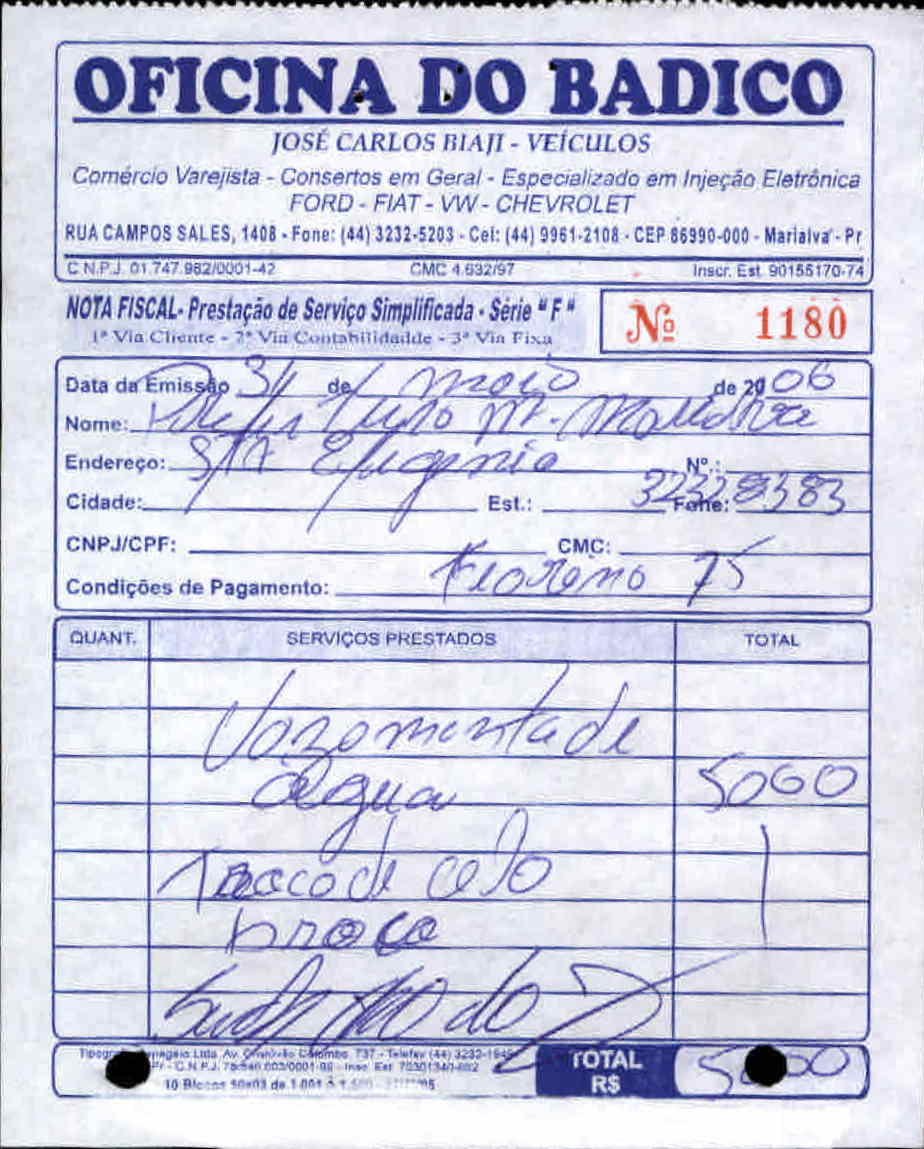 OFICINA DO BADICO
JOSÉ CARLOS BIAJI - VEÍCULOS
Comércio Varejista - Consertos em Geral - Especializado em Injeção Eletrônica
FORD - FIAT - VW - CHEVROLET
RUA CAMPOS SALES, 1408 - Fone: (44) 3232-5203 - Cel: (44) 9961-2108 - CEP 86990-000 - Marialva - Pr
C.N.P.J. 01.747.982/0001-42 CMC 4.632/97 Inscr. Est. 90155170-74
NOTA FISCAL- Prestação de Serviço Simplificada - Série "F"
1ª Via Cliente - 2ª Via Contabilidadde - 3ª Via Fixa
Nº 1180
Data da Emissão 31 de maio de 2006
Nome: M.
Endereço: STA Efigenia Nº.:
Cidade: Est.: Fone: 32328383
CNPJ/CPF: CMC:
Condições de Pagamento: Fiorino 75
QUANT. SERVIÇOS PRESTADOS TOTAL
Vazamenta de
agua 5000
de
do
Ltda. Av. Colombo, 737 - Telefax (44) 3232-
10 Blocos 50x03 de 1.001 à
TOTAL
R$